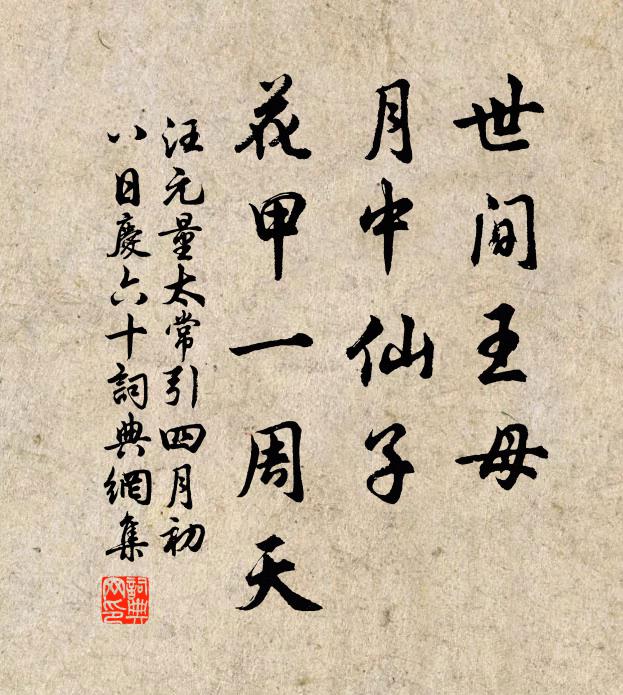 世間王母
月中仙子
花甲一周天
汪元量太常引四月初
八日慶六十詞典網集
詞典
网印